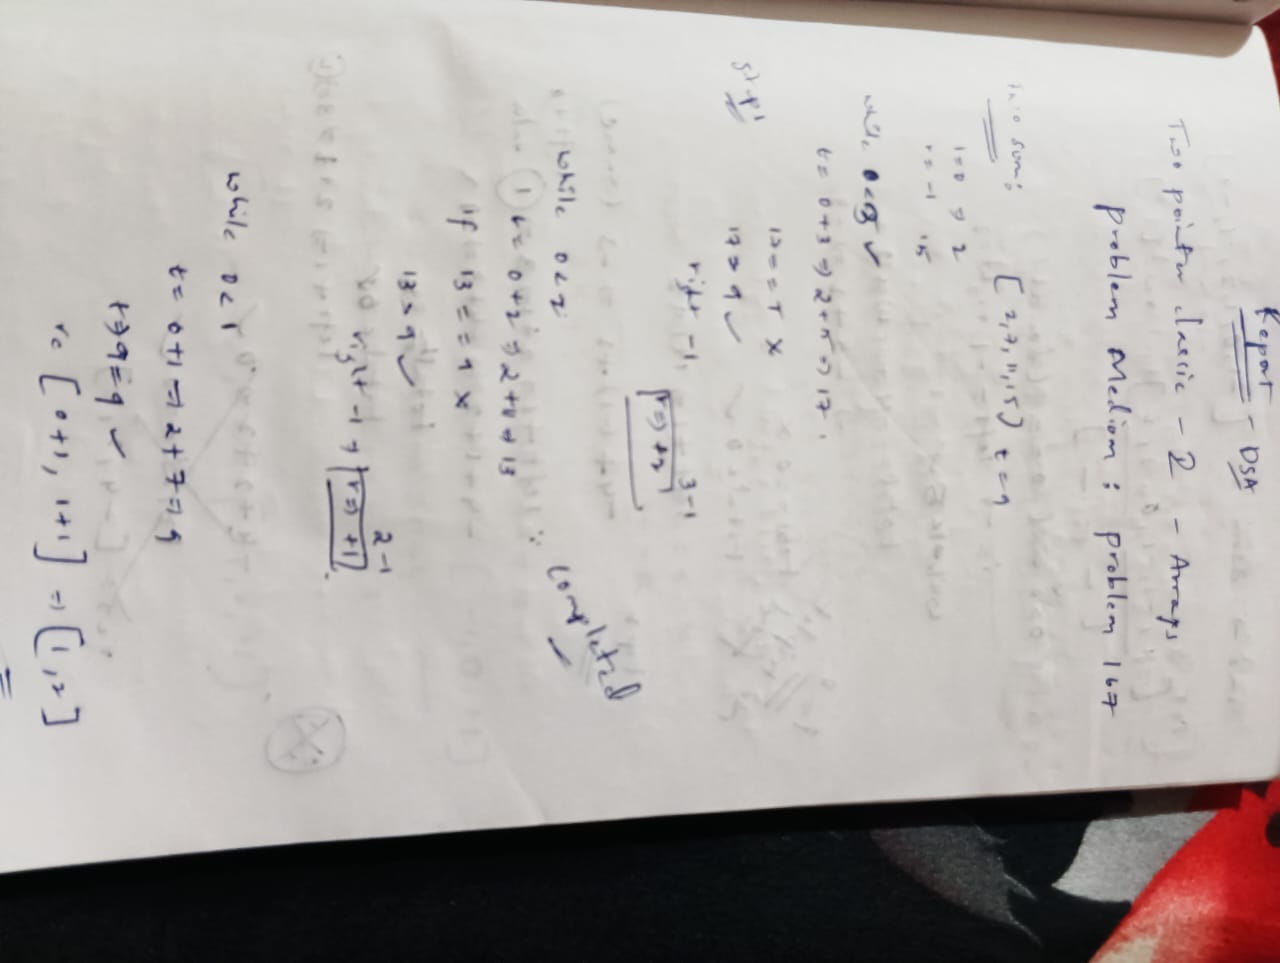 Report - DSA
Two pointer classic - 2 - Arrays
problem Medium : problem 167
Two sum:
[2,7,11,15] t=9
l=0 => 2
r=-1 15
while 0<3 ✓
t= 0+3 => 2+15 => 17.
17==T x
step1
17>9 ✓
right -1,
3-1
r=>+2
while 0<2:
completed
1 t= 0+2 => 2+11 => 13
if 13==9 x
13>9 ✓
right -1 => r=> +1
2-1
while 0<1
t= 0+1 => 2+7=>9
t=>9=9 ✓
[0+1, 1+1] => [1,2]